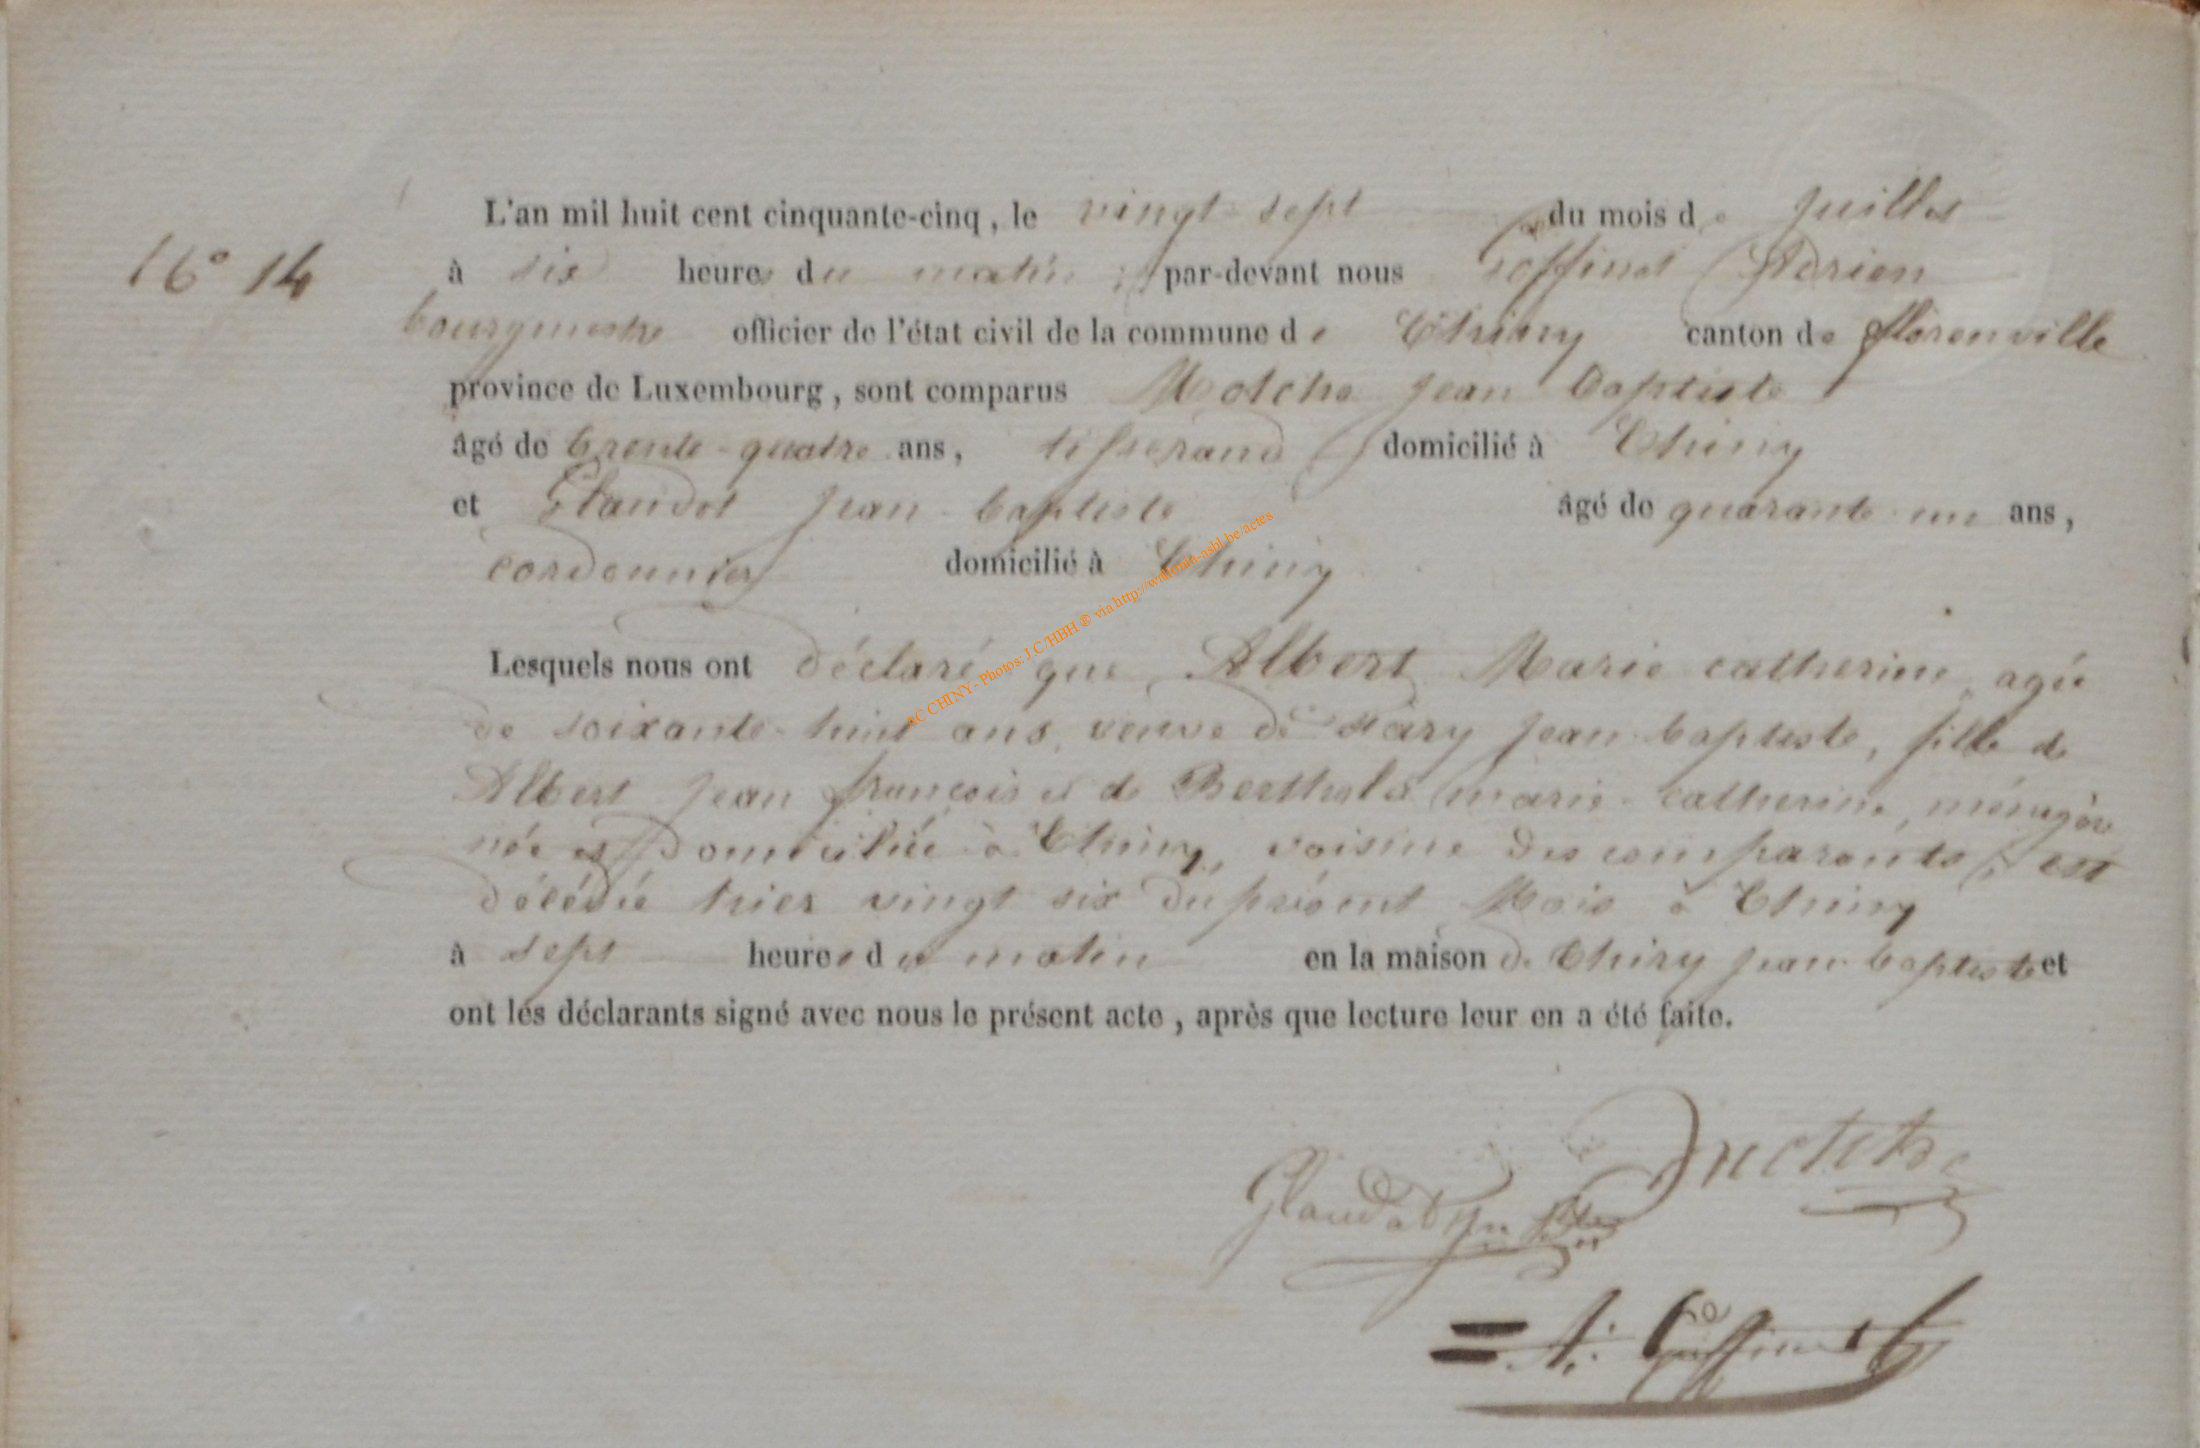 L'an mil huit cent cinquante-cinq, le vingt sept du mois de juillet
N° 14
à six heures du matin par-devant nous Goffinet Adrien
bourgmestre officier de l'état civil de la commune de Chiny canton de florenville
province de Luxembourg, sont comparus jean baptiste
âgé de trente-quatre ans, tisserand domicilié à Chiny
et Glaudot jean baptiste âgé de quarante un ans,
cordonnier domicilié à Chiny
AC CHINY - Photos: J.C/HBH ® via http://wallonia-asbl.be/actes
Lesquels nous ont déclaré que Albert Marie catherine agée
de soixante-huit ans, veuve de jean baptiste, fille de
Albert jean françois et de marie-catherine, ménagère
née et domiciliée à Chiny, voisine des comparants, est
décédée hier vingt six du présent Mois à Chiny
à sept heures du matin en la maison de Thiry jean baptiste et
ont les déclarants signé avec nous le présent acte, après que lecture leur en a été faite.
Glaudot
A. Goffinet